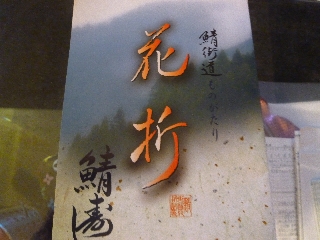 鯖街道ものがたり
花折
鯖寿し